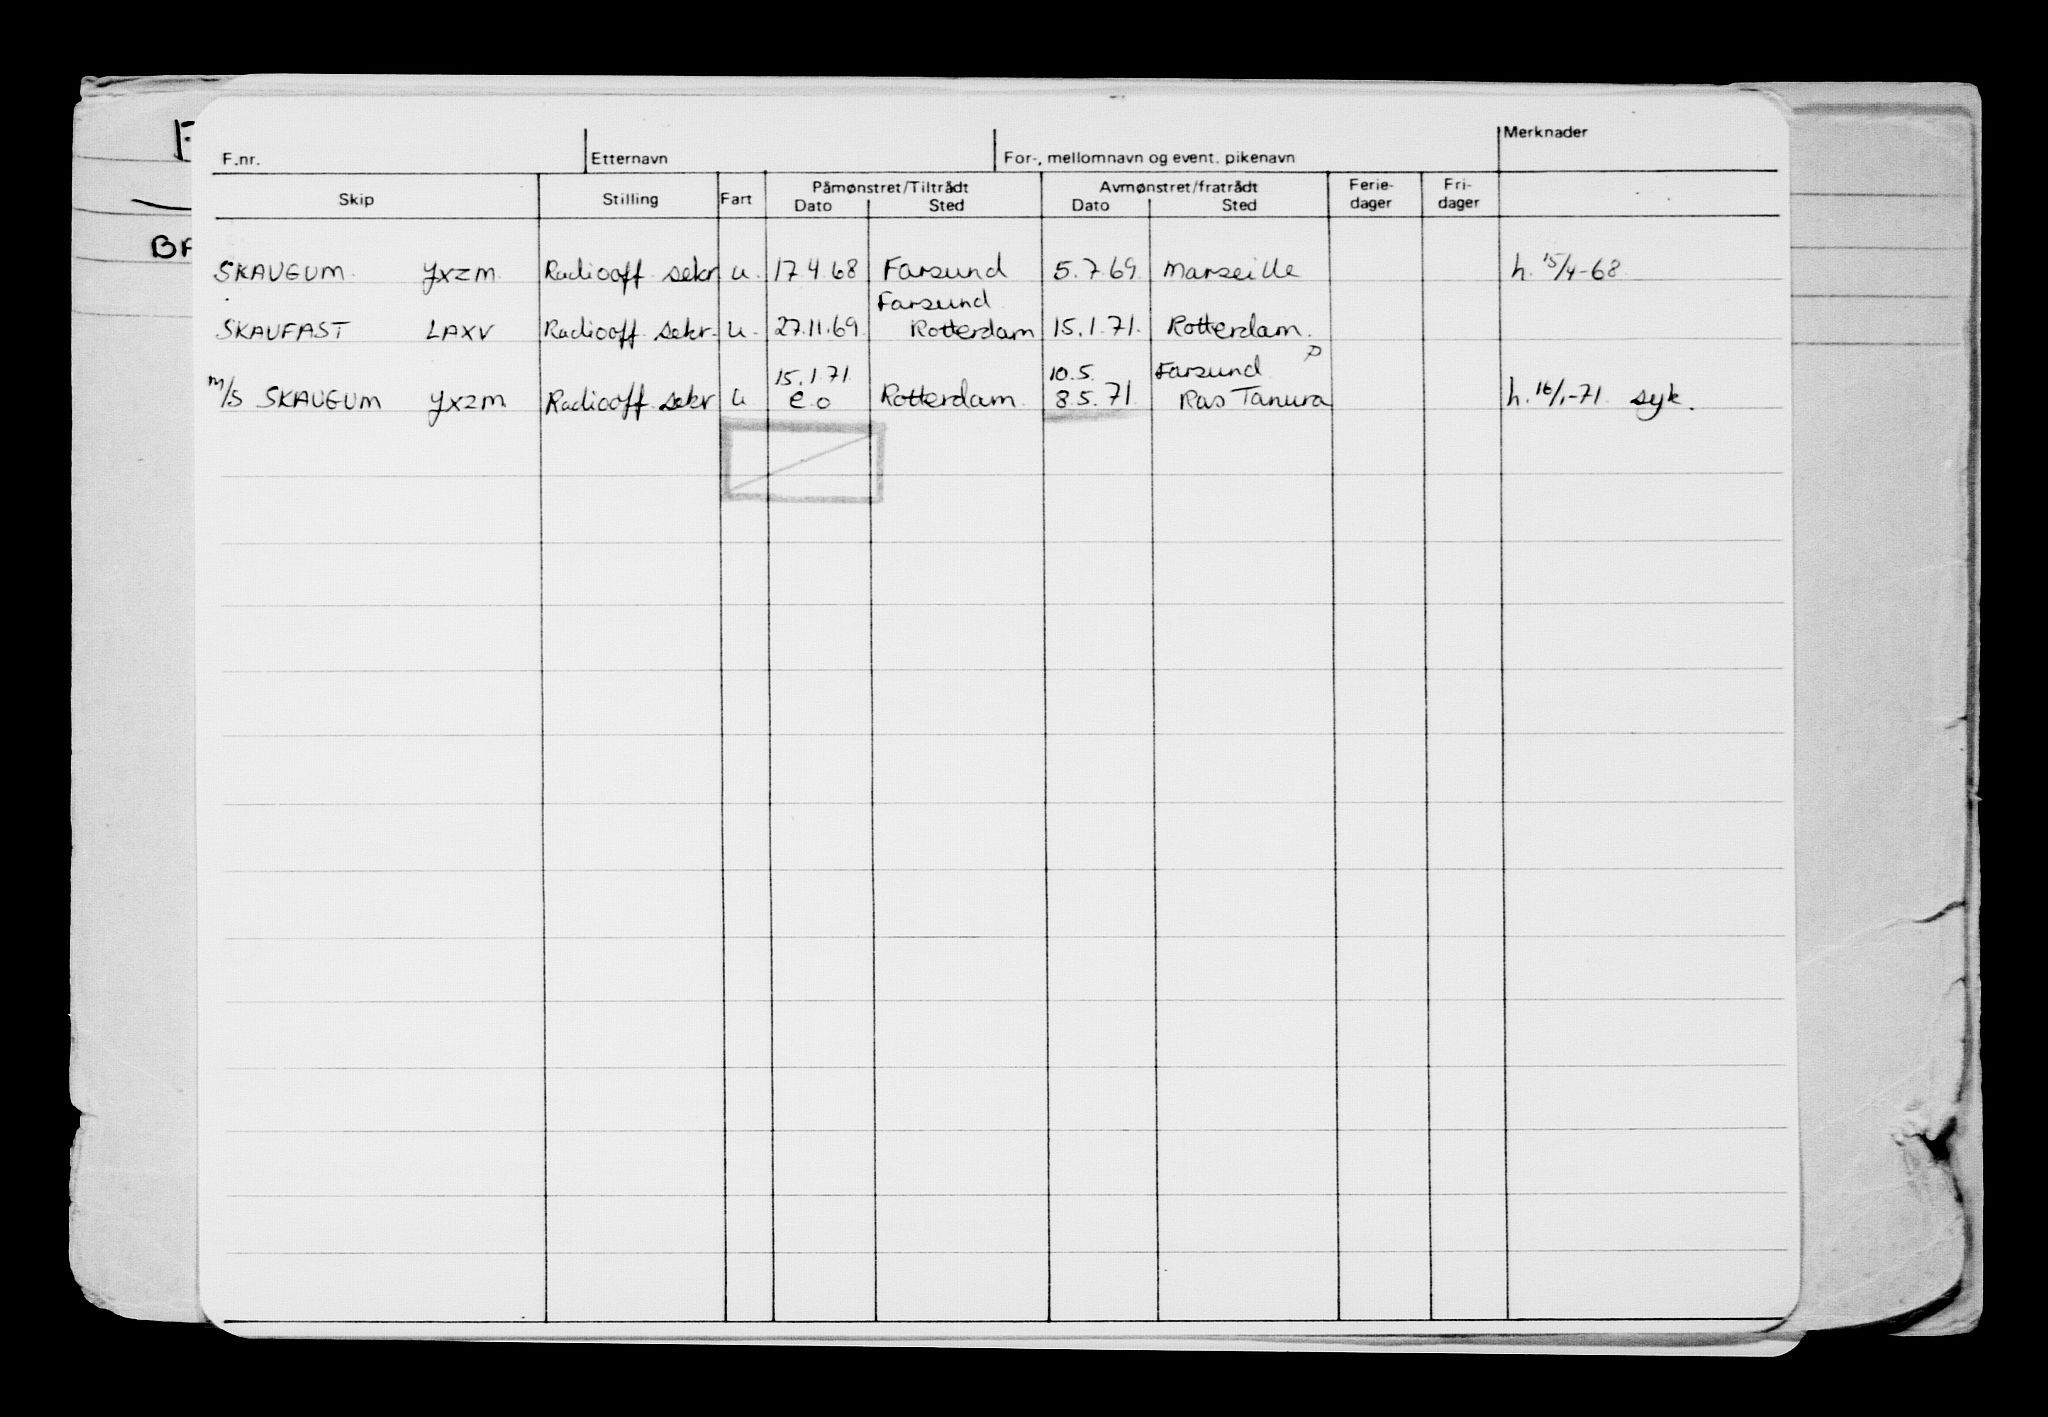 Merknader
F.nr. Etternavn For-, mellomnavn og event. pikenavn
Skip Stilling Fart Påmønstret/Tiltrådt Dato Sted Avmønstret/fratrådt Dato Sted Ferie-dager Fri-dager
BA
SKAUGUM. YXZM. Radiooff sekr u. 17.4.68 Farsund 5.7.69. Marseille h. 15/4-68
Farsund
SKAUFAST LAXV Radiooff sekr. u. 27.11.69. Rotterdam 15.1.71. Rotterdam.
15.1.71. 10.5. Farsund
m/s SKAUGUM YXZM Radiooff sekr u e.o Rotterdam. 8.5.71. Ras Tanura h. 16/1-71. syk.